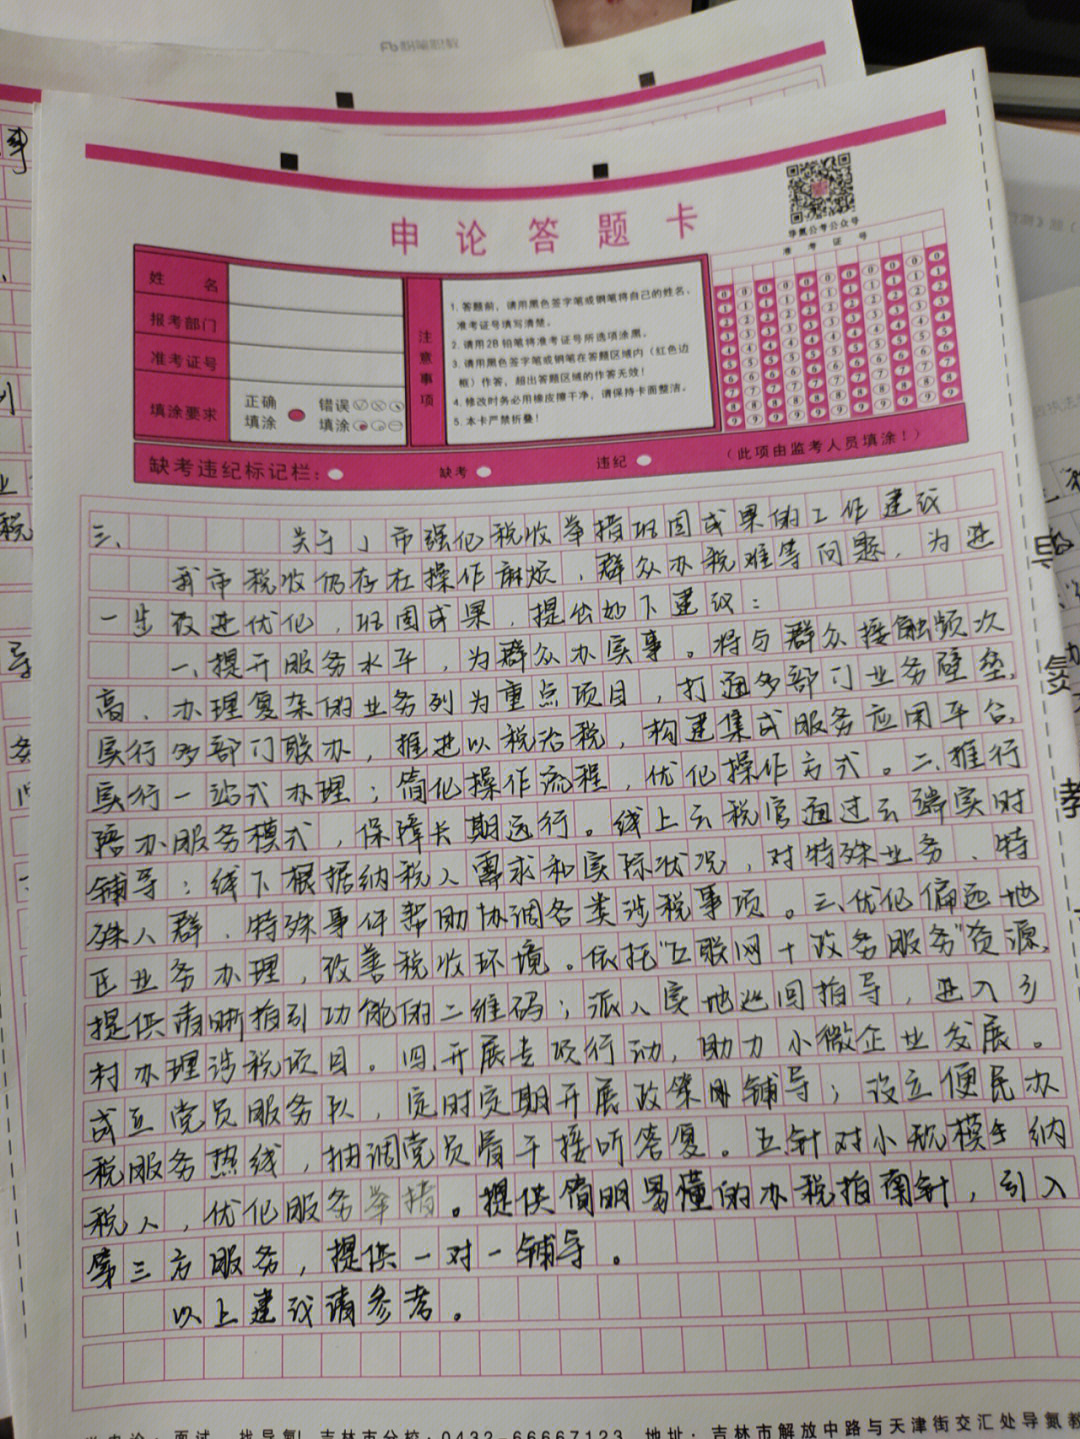 申论答题卡
华氮公考公众号
准考证号
姓名
报考部门
准考证号
填涂要求
正确填涂
错误填涂
注意事项
1. 答题前，请用黑色签字笔或钢笔将自己的姓名、
准考证号填写清楚。
2. 请用2B铅笔将准考证号所选项涂黑。
3. 请用黑色签字笔或钢笔在答题区域内（红色边
框）作答，超出答题区域的作答无效！
4. 修改时务必用橡皮擦干净，请保持卡面整洁。
5. 本卡严禁折叠！
缺考违纪标记栏： 缺考 违纪 （此项由监考人员填涂！）
三、 关于J市强化税收举措巩固成果的工作建议
我市税收仍存在操作麻烦，群众办税难等问题，为进
一步改进优化，巩固成果，提出如下建议：
一、提升服务水平，为群众办实事。将与群众接触频次
高、办理复杂的业务列为重点项目，打通多部门业务壁垒，
实行多部门联办，推进以税治税，构建集成服务应用平台，
实行一站式办理；简化操作流程，优化操作方式。二、推行
陪办服务模式，保障长期远行。线上云税官通过云端实时
辅导；线下根据纳税人需求和实际状况，对特殊业务、特
殊人群、特殊事件帮助协调各类涉税事项。三、优化偏远地
区业务办理，改善税收环境。依托“互联网+政务服务”资源，
提供清晰指引功能的二维码；派人实地巡回指导，进入乡
村办理涉税项目。四、开展专项行动，助力小微企业发展。
成立党员服务队，定时定期开展政策辅导；设立便民办
税服务热线，抽调党员骨干接听答复。五、针对小规模纳
税人，优化服务举措。提供简明易懂的办税指南针，引入
第三方服务，提供一对一辅导。
以上建议请参考。
导氮教
吉林市分校：0432-66667123 地址：吉林市解放中路与天津街交汇处导氮教